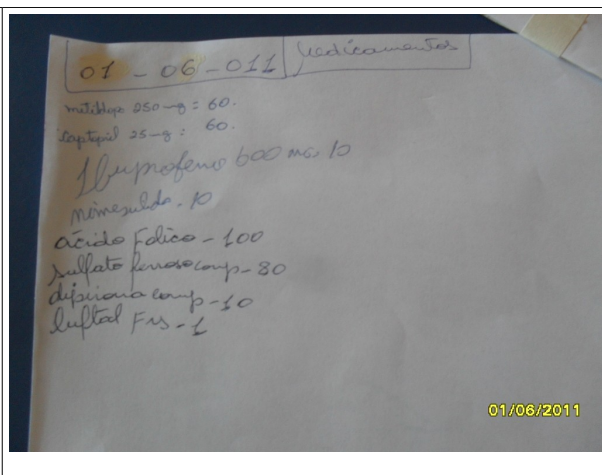 01 - 06 - 011 Medicamentos
metildopa 250 mg = 60.
Captopril 25 mg : 60.
Ibuprofeno 600 mg. 10
nimesulida - 10
ácido Fólico - 100
Sulfato ferroso comp - 80
dipirona comp - 10
luftal Frs - 1
01/06/2011